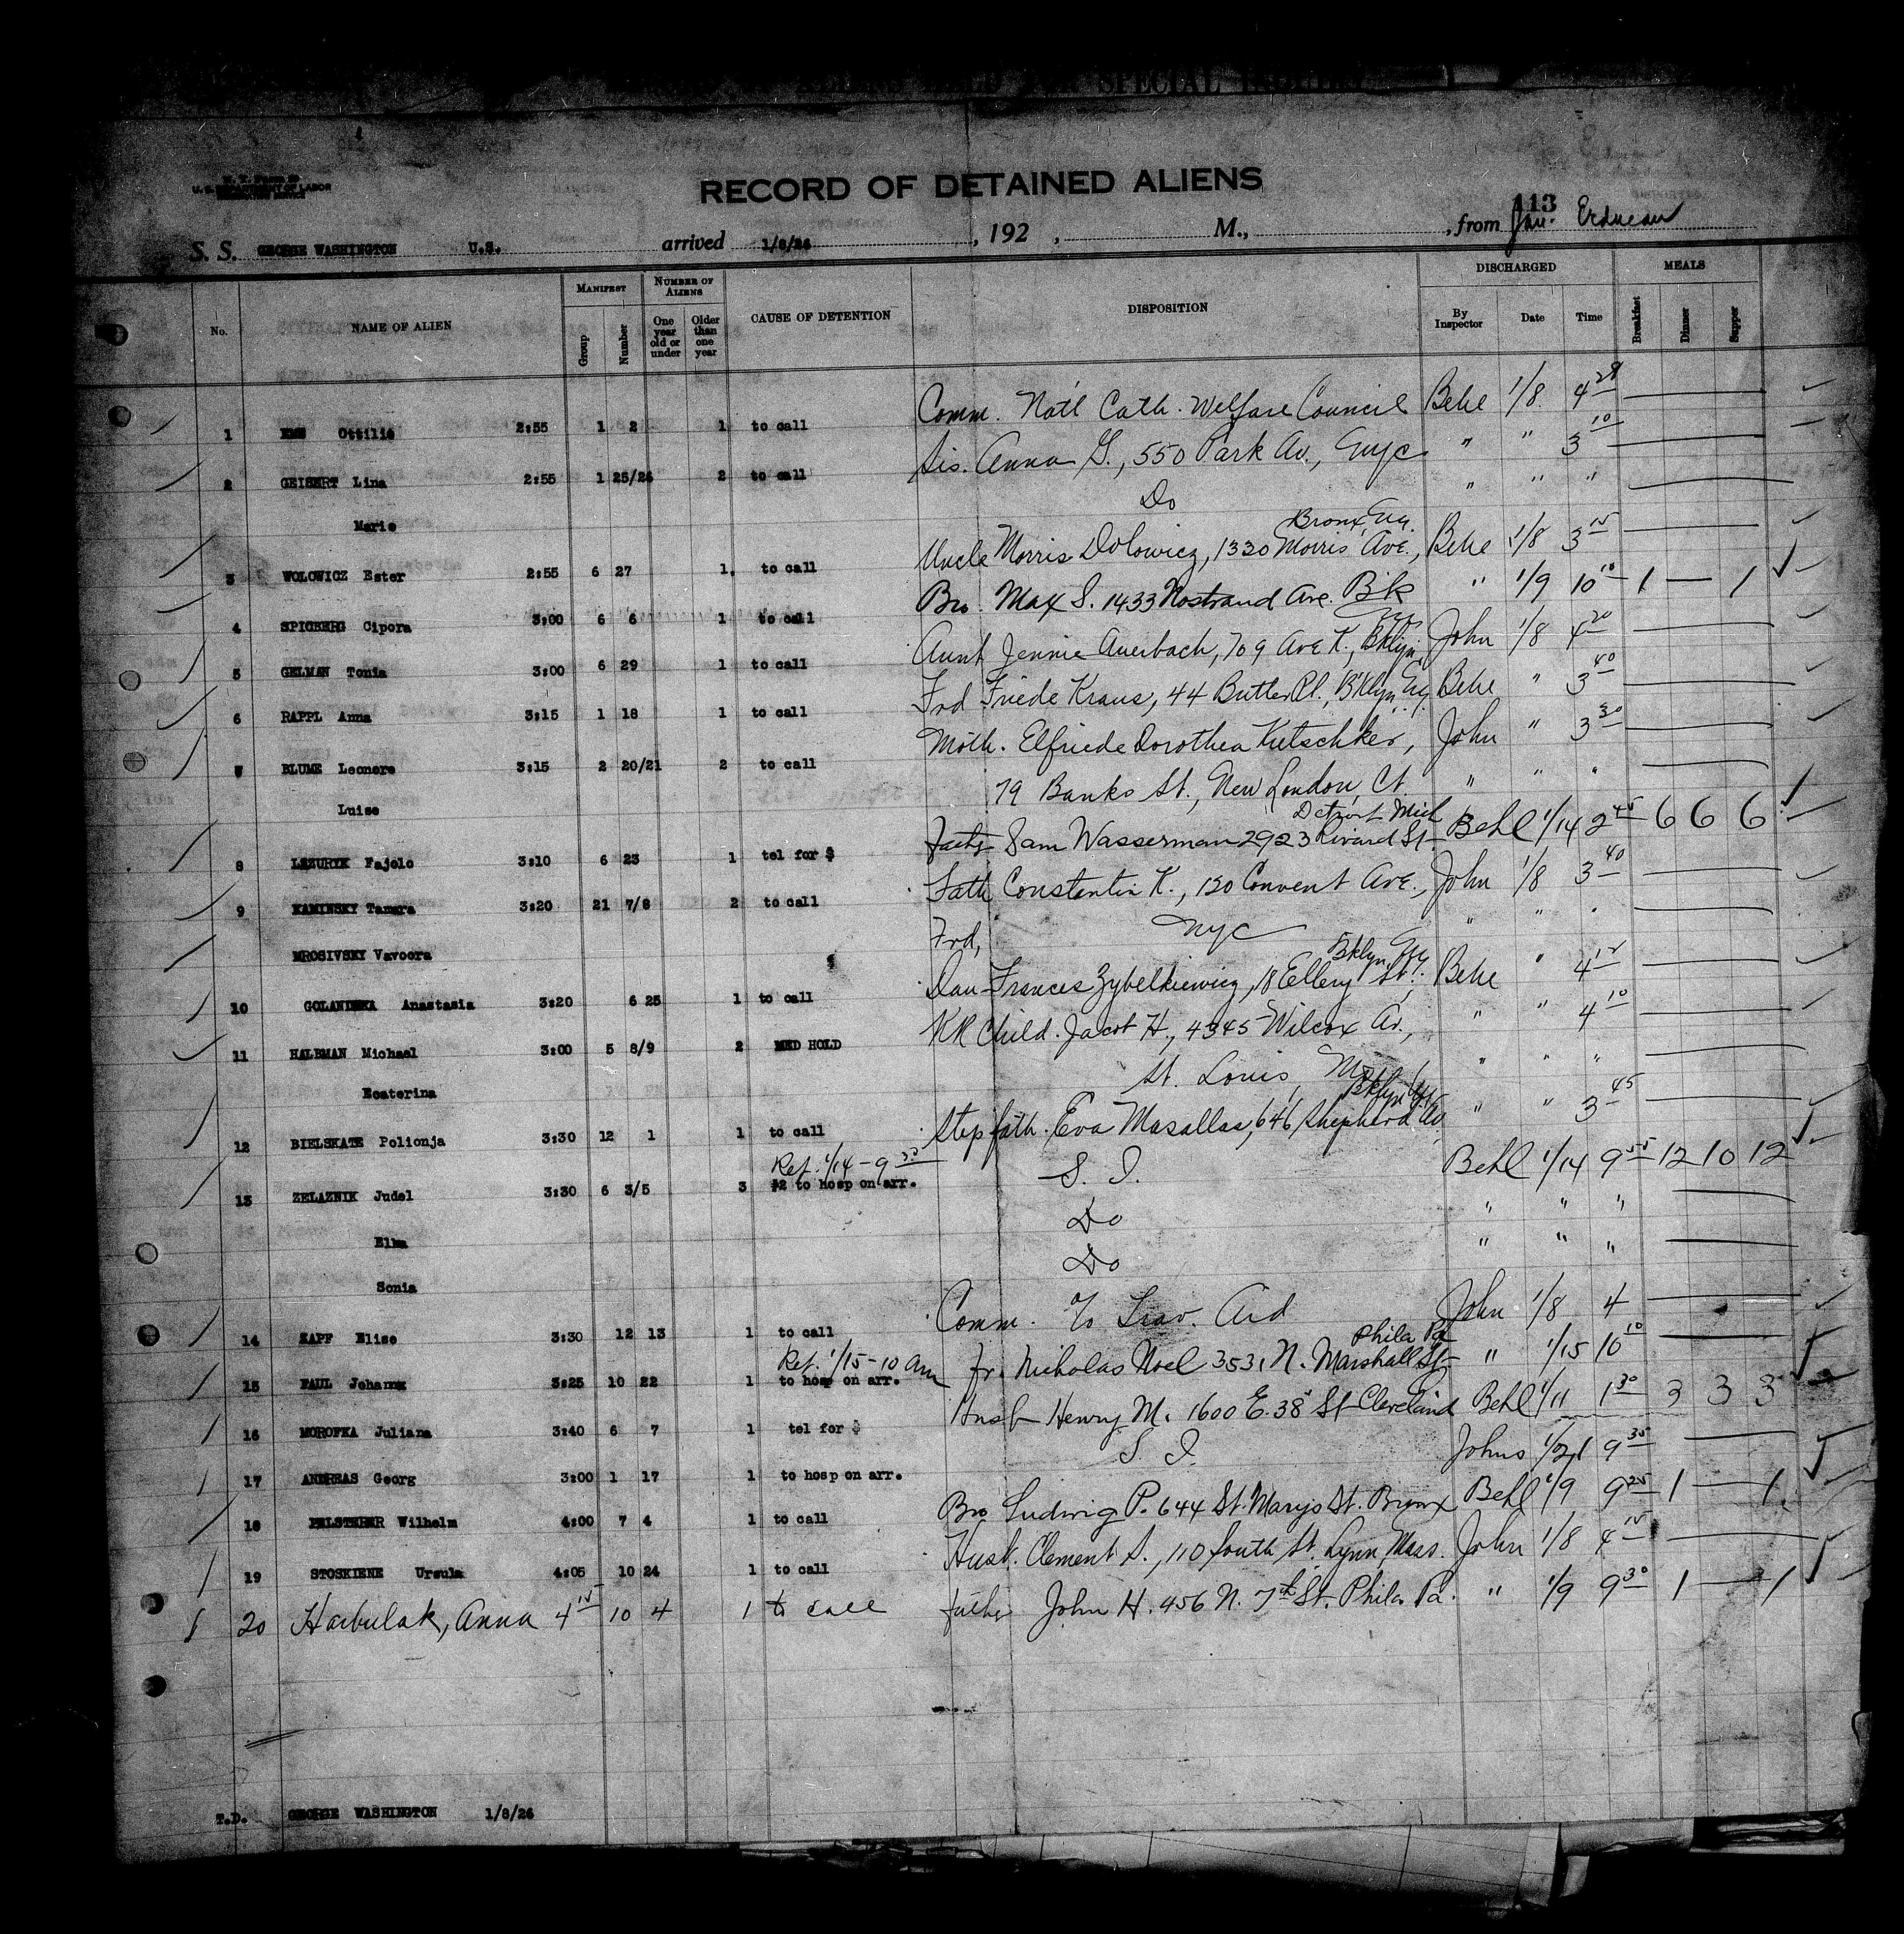 SPECIAL
U. S. DEPARTMENT OF LABOR
RECORD OF DETAINED ALIENS
113
S. S. GEORGE WASHINGTON U.S. arrived 1/8/26, 192 , M., , from
DISCHARGED MEALS
No. NAME OF ALIEN MANIFEST Group Number NUMBER OF ALIENS One year old or under Older than one year CAUSE OF DETENTION DISPOSITION By Inspector Date Time Breakfast Dinner Supper
1 Ottilie 2:55 1 2 1 to call Comm. Nat'l Cath. Welfare Council Behl 1/8 4 28
2 GEISERT Lina 2:55 1 25/26 2 to call Sis. Anna G., 550 Park Av., Nyc " " 3 10
Marie Do " " "
3 WOLOWICZ Ester 2:55 6 27 1 to call Uncle Morris Dolowicz, 1330 Morris Ave., Bronx, Ny. Behl 1/8 3 15
4 SPIGBERG Cipora 3:00 6 6 1 to call Bro. Max S. 1433 Nostrand Ave. Bk " 1/9 10 10 1 — 1
5 GELMAN Tonia 3:00 6 29 1 to call Aunt Jennie Auerbach, 709 Ave K., Bklyn John 1/8 4 20
6 RAPPL Anna 3:15 1 18 1 to call Frd Friede Kraus, 44 Butler Pl., Bklyn, Ny. Behl " 3 40
7 BLUME Leonore 3:15 2 20/21 2 to call Moth. Elfriede Dorothea Kutschker, John " 3 30
Luise 79 Banks St., New London, Ct. " " "
8 LEZURYK Fajelo 3:10 6 23 1 tel for $ Fath Sam Wasserman 2923 Rivard St Detroit Mich Behl 1/14 2 45 6 6 6
9 KAMINSKY Tamara 3:20 21 7/8 2 to call Fath Constantin K., 130 Convent Ave., John 1/8 3 40
MROSIVSKY Vavoora Frd, Nyc " " "
10 GOLANDSKA Anastasia 3:20 6 25 1 to call Dau Frances Zybelkiewicz, 18 Ellery St. Bklyn, Ny Behl " 4 12
11 HALBMAN Michael 3:00 5 8/9 2 MED HOLD RR Child. Jacob H., 4345 Wilcox Av., " " 4 10
Ecaterina St. Louis, Mo " " "
12 BIELSKATE Polionja 3:30 12 1 1 to call Step fath. Eva Masallas, 646 Shepherd Av. Bklyn Ny. " " 3 45
Ref. 1/14 - 9 30
13 ZELAZNIK Judel 3:30 6 3/5 3 #2 to hosp on arr. S. I. Behl 1/14 9 55 12 10 12
Elka Do " " "
Sonia Do " " "
14 ZAPF Elise 3:30 12 13 1 to call Comm. To Trav. Aid John 1/8 4
Ref. 1/15 - 10 Am
15 PAUL Johanna 3:25 10 22 1 to hosp on arr. fr. Nicholas Noel 3531 N. Marshall St Phila Pa " 1/15 10 10
16 MOROFKA Juliana 3:40 6 7 1 tel for $ Husb Henry M. 1600 E. 38 St Cleveland Behl 1/11 1 30 3 3 3
17 ANDREAS Georg 3:00 1 17 1 to hosp on arr. S. I. Johns 1/21 9 35
18 PELSTERER Wilhelm 4:00 7 4 1 to call Bro Ludwig P. 644 St. Marys St. Bronx Behl 1/9 9 25 1 — 1
19 STOSKIENE Ursula 4:05 10 24 1 to call Husb. Clement S., 110 South St. Lynn Mass. John 1/8 4 15
20 Harbulak, Anna 4 15 10 4 1 to call father John H. 456 N. 7th St. Phila Pa. " 1/9 9 30 1 — 1
T.D. GEORGE WASHINGTON 1/8/26